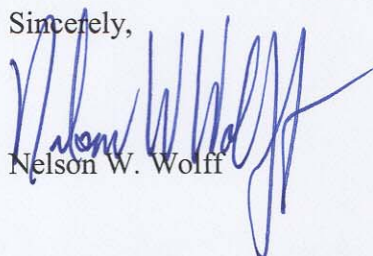 Sincerely,
Nelson W Wolff
Nelson W. Wolff